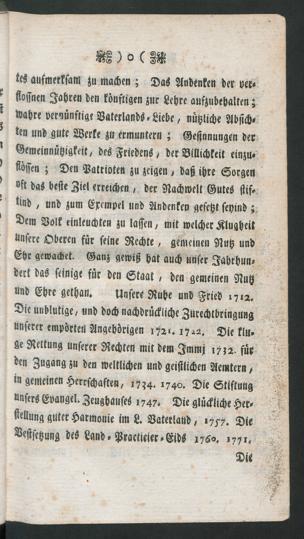 ) o (
tes aufmerksam zu machen; Das Andenken der ver-
floßnen Jahren den könftigen zur Lehre aufzubehalten;
wahre vernünftige Vaterlands-Liebe, nützliche Absich-
ten und gute Werke zu ermuntern; Gesinnungen der
Gemeinnützigkeit, des Friedens, der Billichkeit einzu-
flössen; Den Patrioten zu zeigen, daß ihre Sorgen
oft das beste Ziel erreichen, der Nachwelt Gutes stif-
tind, und zum Exempel und Andenken gesetzt seyind;
Dem Volk einleuchten zu lassen, mit welcher Klugheit
unsere Oberen für seine Rechte, gemeinen Nutz und
Ehr gewachet. Ganz gewiß hat auch unser Jahrhun-
dert das seinige für den Staat, den gemeinen Nutz
und Ehre gethan. Unsere Ruhe und Fried 1712.
Die unblutige, und doch nachdrückliche Zurechtbringung
unserer empörten Angehörigen 1721. 1722. Die klu-
ge Rettung unserer Rechten mit dem Immj 1732. für
den Zugang zu den weltlichen und geistlichen Aemtern,
in gemeinen Herrschaften, 1734. 1740. Die Stiftung
unsers Evangel. Zeughauses 1747. Die glückliche Her-
stellung guter Harmonie im L. Vaterland, 1757. Die
Vestsetzung des Land-Practicier-Eids 1760. 1771.
Die